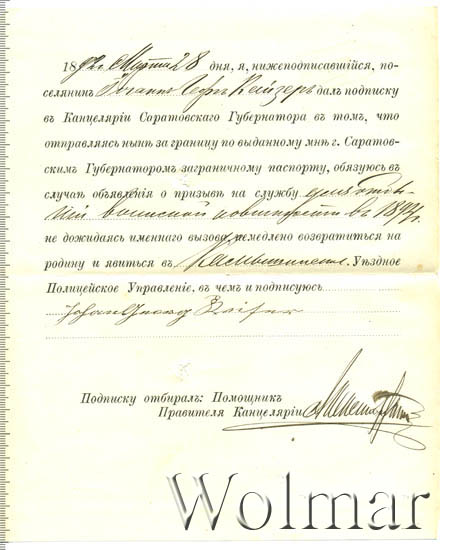 1892 г. Марта 28 дня, я, нижеподписавшійся, по-
селянинъ Іоганъ Кейзеръ далъ подписку
въ Канцеляріи Соратовскаго Губернатора въ томъ, что
отправляясь нынѣ за границу по выданному мнѣ г. Саратов-
скимъ Губернаторомъ заграничному паспорту, обязуюсь въ
случаѣ объявленія о призывѣ на службу
воинской повинности въ 189 г.
не дожидаясь именнаго вызова, немедлено возвратиться на
родину и явиться въ Камышинское Уѣздное
Полицейское Управленіе, въ чемъ и подписуюсь
Johan Georg
Подписку отбиралъ: Помощникъ
Правителя Канцеляріи
Wolmar